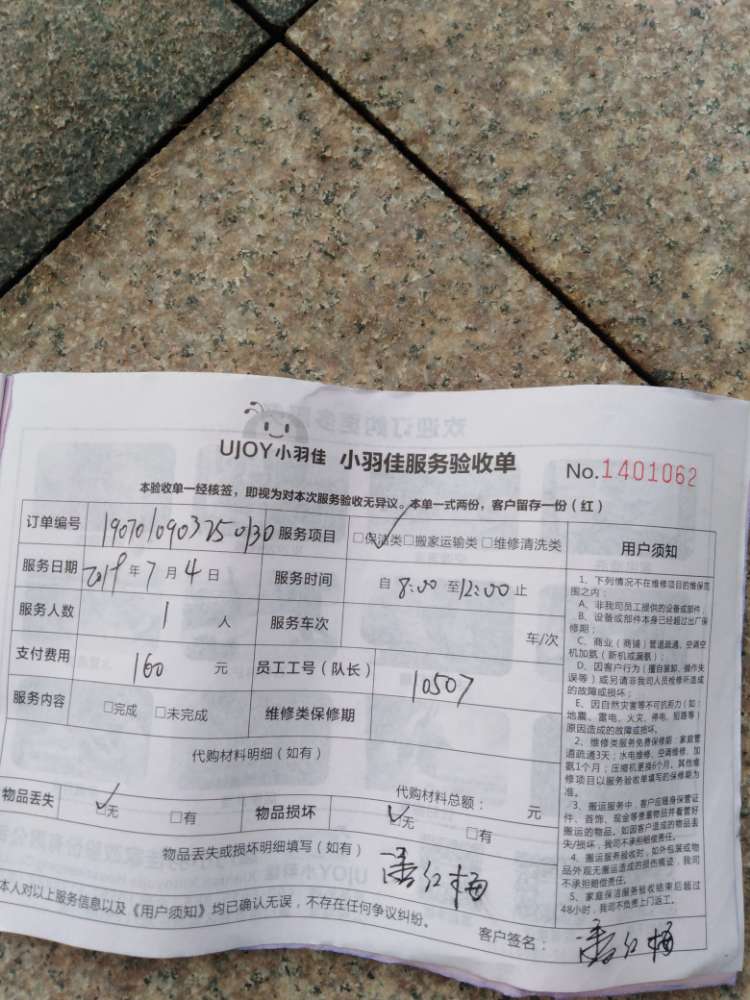 UJOY小羽佳 小羽佳服务验收单 No.1401062
本验收单一经核签，即视为对本次服务验收无异议。本单一式两份，客户留存一份（红）
订单编号 190701090325 0130 服务项目 □保洁类□搬家运输类□维修清洗类
服务日期 2019年7月4日 服务时间 自8:00至12:00止
服务人数 1人 服务车次 车/次
支付费用 160元 员工工号（队长） 10507
服务内容 □完成 □未完成 维修类保修期
代购材料明细（如有）
代购材料总额： 元
物品丢失 □无 □有 物品损坏 □无 □有
物品丢失或损坏明细填写（如有） 潘红梅
本人对以上服务信息以及《用户须知》均已确认无误，不存在任何争议纠纷。
客户签名： 潘红梅
用户须知
1、下列情况不在维修项目的维保范
围之内：
A、非我司员工提供的设备或部件；
B、设备或部件本身已经超过出厂保
修期；
C、商业（商铺）管道疏通、空调空
机加氨（新机或漏氨）；
D、因客户行为（擅自装卸、操作失
误等）或另请非我司人员维修所造成
的故障或损坏；
E、因自然灾害等不可抗拒力（如：
地震、雷电、火灾、停电、短路等）
原因造成的故障或损坏。
2、维修类服务免费保修期：家庭管
道疏通3天；水电维修、空调维修、加
氨1个月；压缩机更换6个月。其他维
修项目以服务验收单填写的保修期为
准。
3、搬运服务中，客户应随身保管证
件、首饰、现金等贵重物品并看管好
搬运的物品。如因客户造成的物品丢
失/损坏，我司不承担赔偿责任。
4、搬运服务验收时，如外包装或物
品外观无搬运造成的损伤痕迹，我司
不承担赔偿责任。
5、家庭保洁服务验收结束后超过
48小时，我司不负责上门返工。